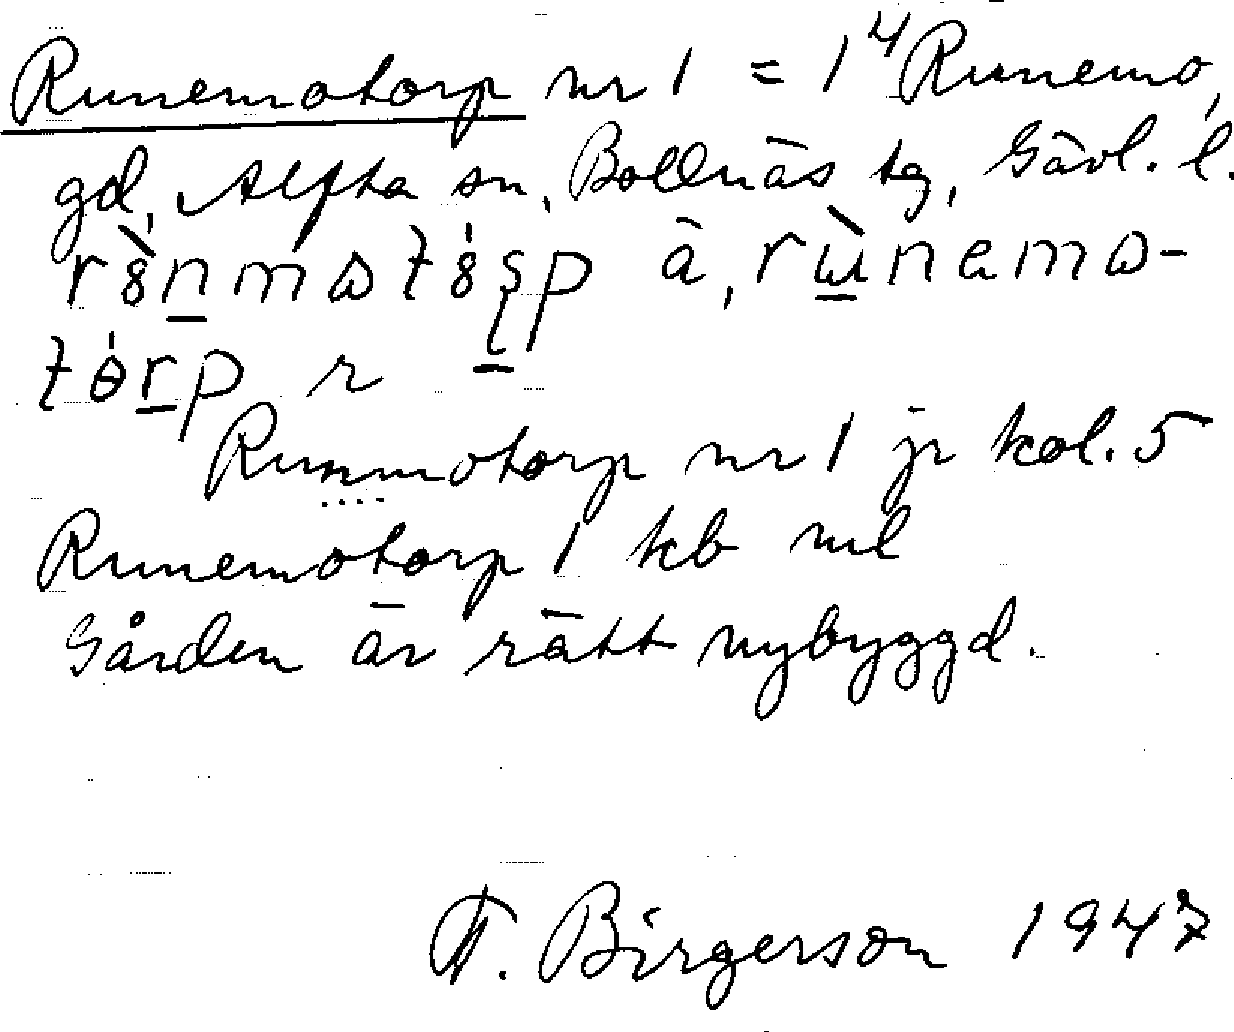 Runemotorp nr 1 = 1⁴ Runemo,
gd, Alfta sn, Bollnäs tg, Gävl. l.
ä,
r
Runnmotorp nr 1 jr kol. 5
Runemotorp 1 kb ml
Gården är rätt nybyggd.
T. Birgerson 1947